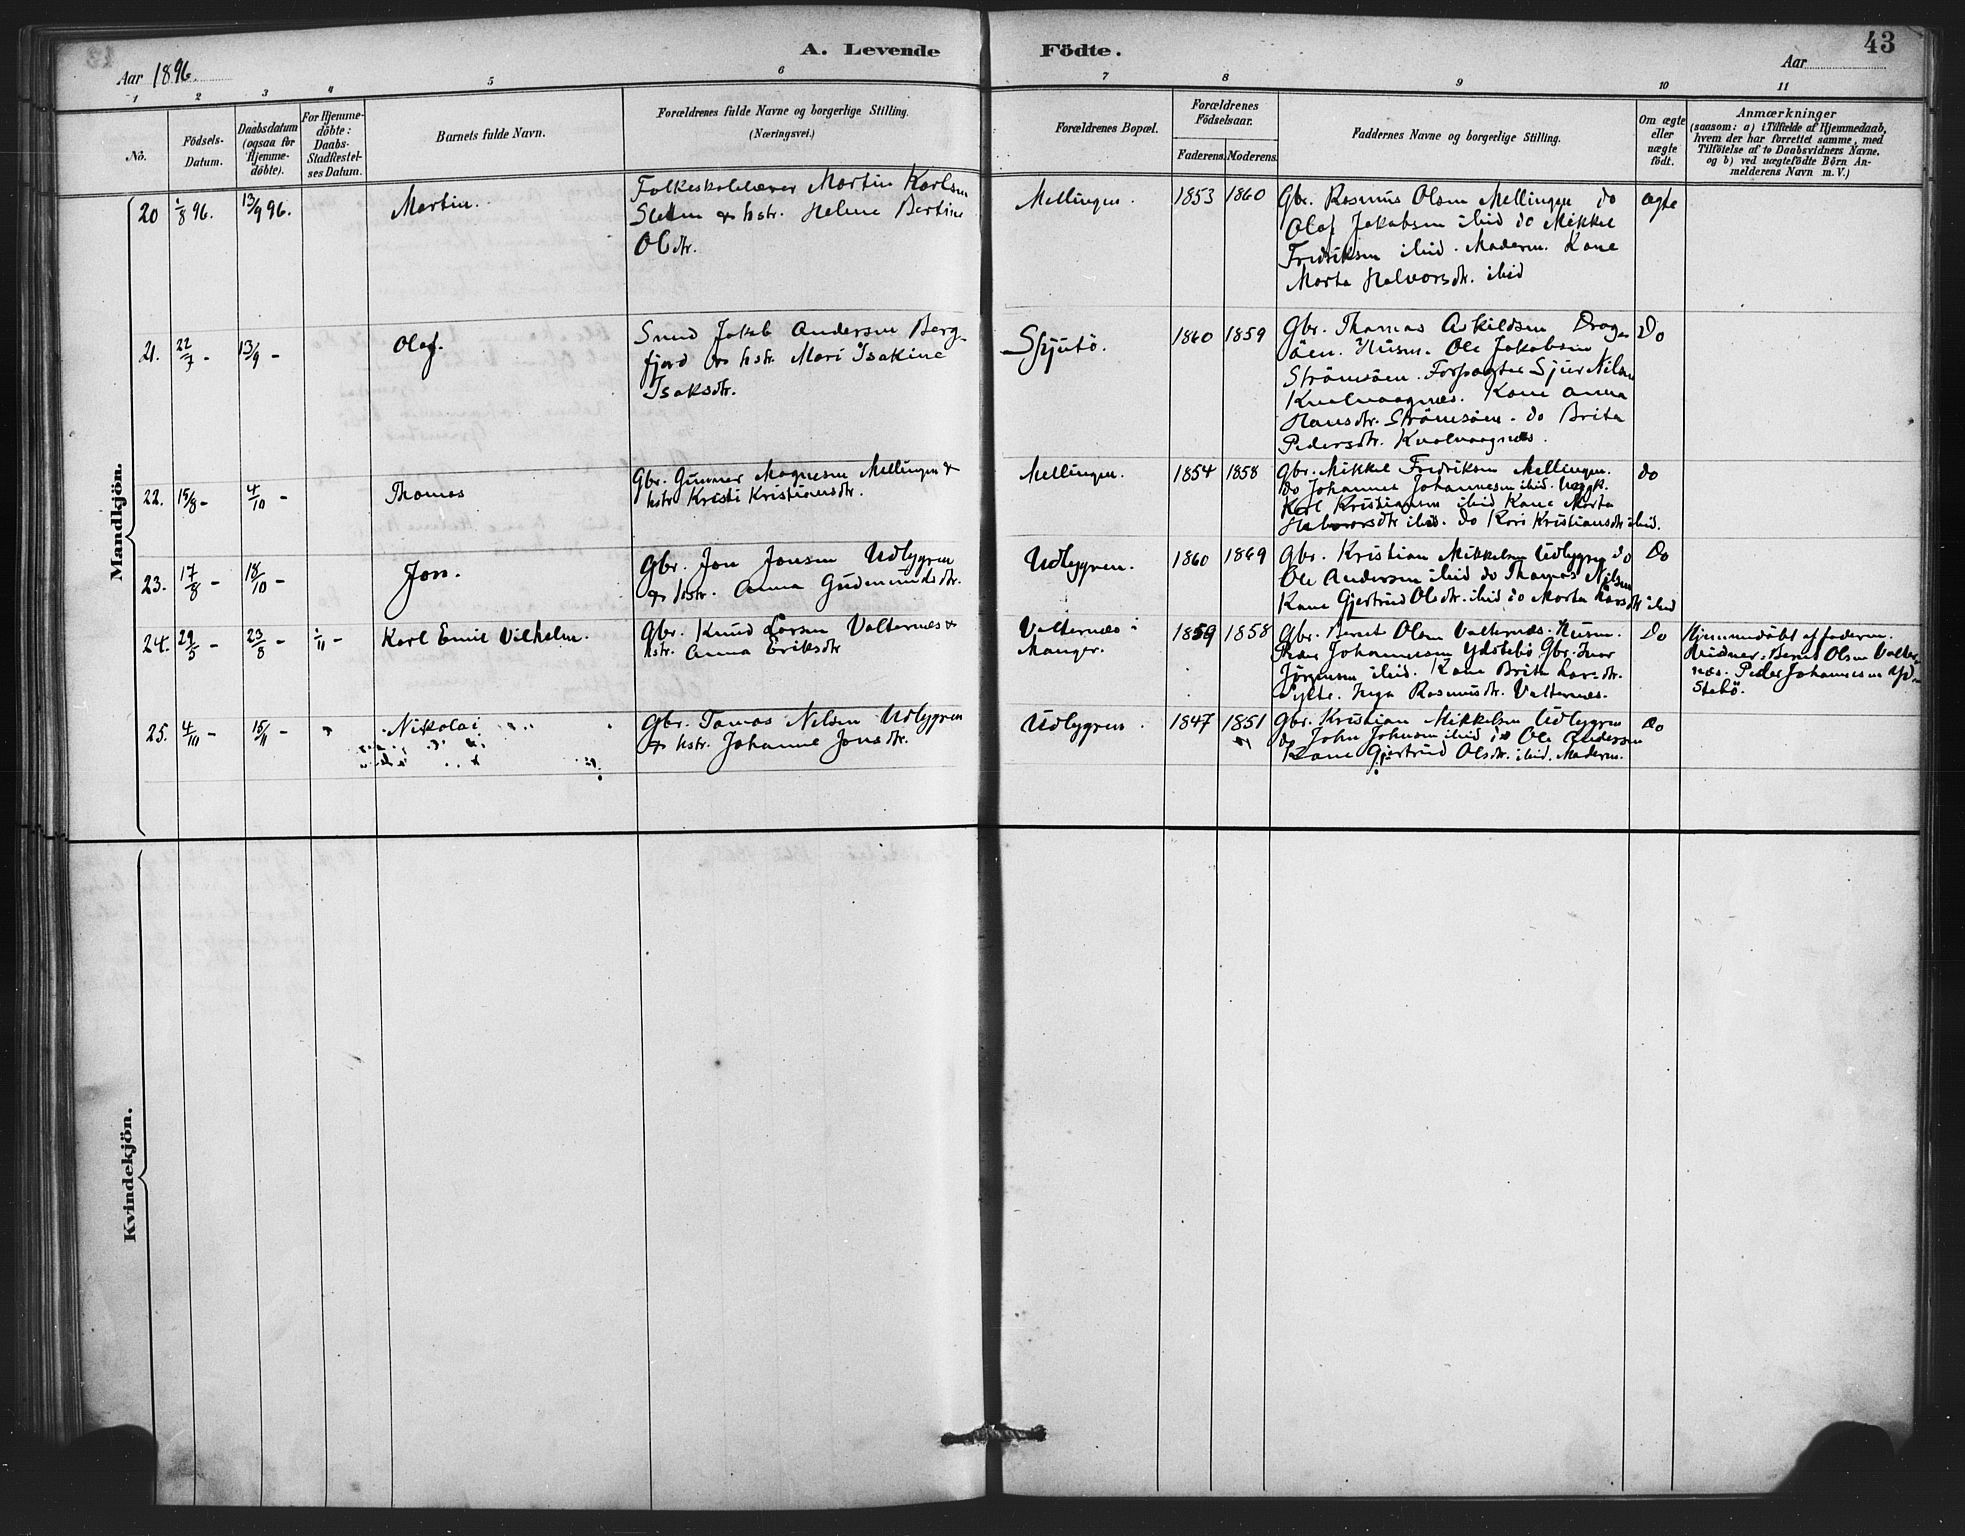 A. Levende Födte.
43
Aar 1896.
Aar
1 2 3 4 5 6 7 8 9 10 11
No.
Födsels-Datum.
Daabsdatum (ogsaa for Hjemmedöbte).
For Hjemmedöbte: Daabs-Stadfæstelses Datum.
Barnets fulde Navn.
Forældrenes fulde Navne og borgerlige Stilling.
(Næringsvei.)
Forældrenes Bopæl.
Forældrenes Födselsaar.
Faderens. Moderens.
Faddernes Navne og borgerlige Stilling.
Om ægte eller uægte födt.
Anmærkninger
(saasom: a) i Tilfælde af Hjemmedaab, hvem der har forrettet samme, med Tilföielse af to Daabsvidners Navne, og b) ved uægtefödte Börn Anmelderens Navn m. V.)
Mandkjön.
20 1/8 96. 13/9 96.
Martin.
Folkeskolelærer Martin Karlsen
& hstr. Helene Bertine
Olsdtr.
Mellingen.
1853 1860
Gbr. Rasmus Olsen Mellingen do
Olaf Jakobsen ibid do Mikkel
Fredriksen ibid. Moderen. Kone
Marta Halvorsdtr. ibid
ægte
21. 22/7 - 13/9 -
Olaf.
Smed Jakob Andersen Berg-
fjord & hstr. Mari Isakine
Isaksdtr.
Skjutö.
1860 1859
Gbr. Thomas Askildsen Drage-
öen. Husm. Ole Jakobsen
Strömsöen. Forpagter Sjur Nilsen
Kvalvaagnæs. Kone Anna
Hansdtr. Strömsöen. do Brita
Pedersdtr. Kvalvaagnæs.
Do
22. 15/8 - 4/10 -
Thomas
Gbr. Gunnar Magnesen Mellingen &
hstr Kristi Kristiansdtr.
Mellingen.
1854 1858
Gbr. Mikkel Fredriksen Mellingen.
do Johannes Johannesen ibid. Ungk.
Karl Kristiansen ibid Kone Marta
Halvorsdtr ibid. do Kari Kristiansdtr ibid.
do
23. 17/8 - 18/10 -
Jon.
Gbr. Jon Jonsen Udlygren
& hstr. Anna Gudmundsdtr.
Udlygren.
1860 1869
Gbr. Kristian Mikkelsen Udlygren do
Ole Andersen ibid do Thomas Nilsen
Kone Gjertrud Olsdtr. ibid do Marta Larsdtr ibid
Do
24. 29/5 - 23/8 - 1/11 -
Karl Emil Vilhelm.
Gbr. Knud Larsen Valternæs &
hstr. Anna Eriksdtr
Valternæs i
Manger.
1859 1858
Gbr. Bernt Olsen Valternæs. Husm.
Peder Johannesen Ydstebö Gbr. Ivar
Jörgensen ibid. Kone Brita Larsdtr.
Inga Rasmusdtr. Valternæs.
Do
Hjemmedöbt af faderen.
Vidner. Bernt Olsen Valter-
næs. Peder Johannesen Yd-
stebö.
25. 4/10 - 15/11 - "
Nikolai
Gbr. Tomas Nilsen Udlygren
& hstr. Johanne Jonsdtr.
Udlygren
1847 1851
Gbr. Kristian Mikkelsen Udlygren
do John Johnsen ibid do Ole Andersen
Kone Gjertrud Olsdtr. ibid. Moderen.
do
Kvindekjön.